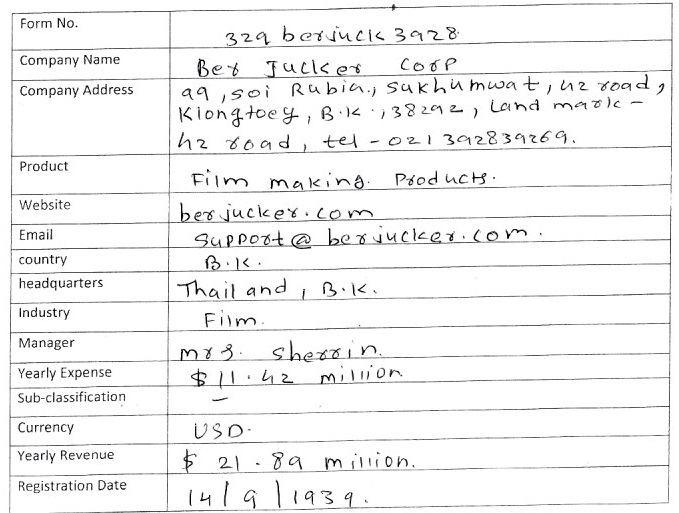 Form No. 329 berjuck 3928
Company Name Ber Jucker Corp
Company Address 99, soi Rubia., sukhumwat, 42 road,
Klongtoey, B.K., 38292, Land mark -
42 road, tel - 021392839269.
Product Film making. Products.
Website berjucker.com
Email support@berjucker.com.
country B.K.
headquarters Thailand, B.K.
Industry Film.
Manager mrs. sherrin.
Yearly Expense $11.42 million
Sub-classification –
Currency USD.
Yearly Revenue $ 21.89 million.
Registration Date 14/9/1939.